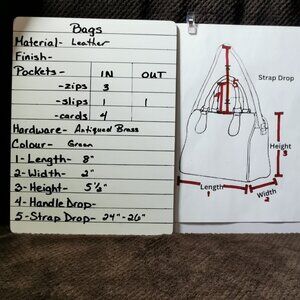 Bags
Material- Leather
Finish-
Pockets- IN OUT
-zips 3
-slips 1 1
-cards 4
Hardware- Antiqued Brass
Colour- Green
1-Length- 8"
2-Width- 2"
3-Height- 5½"
4-Handle Drop-
5-Strap Drop- 24"-26"
Strap Drop
Height
3
Length
1
Width
2